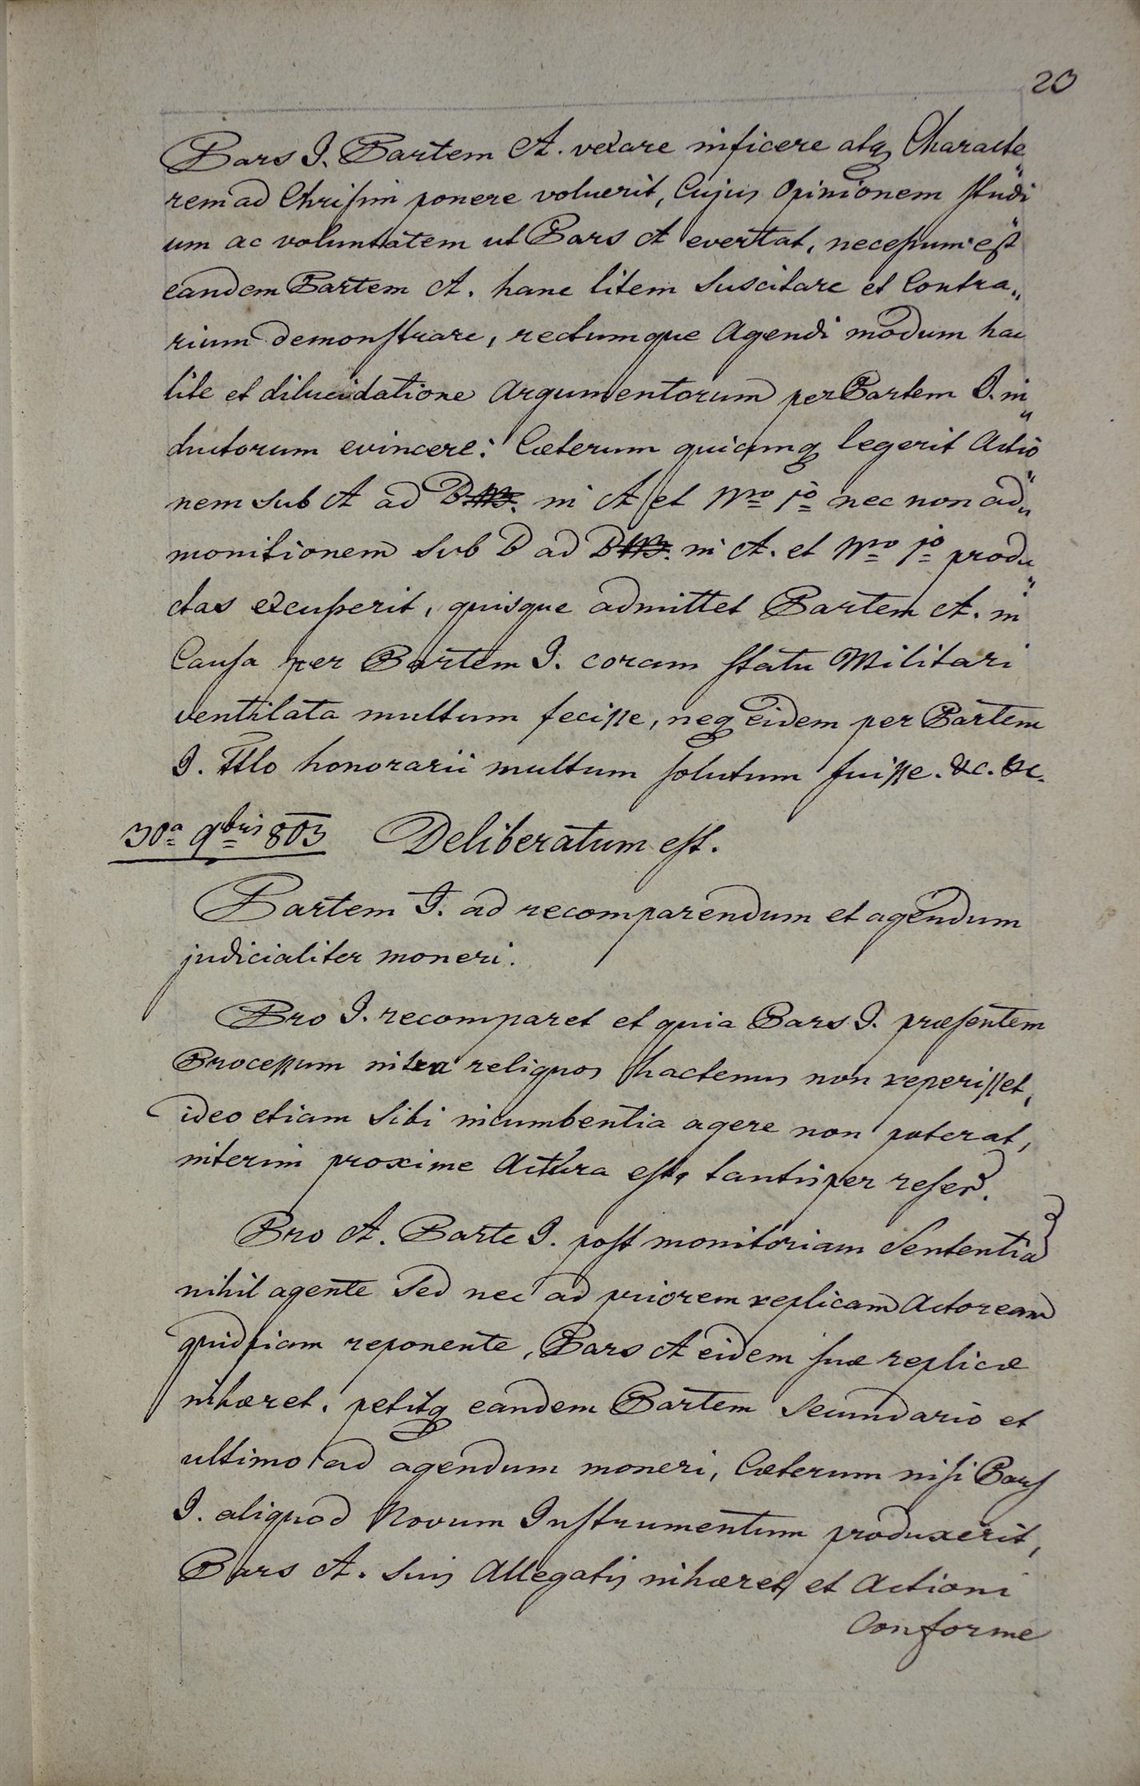 20
Pars I. Partem A. vexare inficere atq Characte„
rem ad Chrisim ponere voluerit, Cujus Opinionem studi„
um ac voluntatem ut Pars A evertat, necessum est
eandem Partem A. hanc litem Suscitare et Contra„
rium demonstrare, rectumque Agendi modum hac
lite et dilucidatione Argumentorum per Partem I. in„
ductorum evincere: Cæterum quicumq legerit Actio„
nem sub A ad D in A et Nro 1o nec non ad„
monitionem sub D ad D in A. et Nro 1o produ„
ctas excusserit, quisque admittet Partem A. in
Causa per Partem I. coram statu Militari
ventilata multum fecisse, neq eidem per Partem
I. Ttlo honorarii multum solutum fuisse. &c. &c.
30a 9bris 803 Deliberatum est.
Partem I. ad recomparendum et agendum
judicialiter moneri.
Pro I. recomparet et quia Pars I. præsentem
Processum intra reliquos hactenus non reperisset,
ideo etiam Sibi incumbentia agere non poterat,
interim proxime Actura est, tantisper reser.
Pro A. Parte I. post monitoriam Sententia
nihil agente Sed nec ad priorem replicam Actoream
quidpiam reponente, Pars A eidem suæ replicæ
inhæret. petitq eandem Partem Secundario et
ultimo ad agendum moneri, Cæterum nisi Pars
I. aliquod Novum Instrumentum produxerit,
Pars A. Suis Allegatis inhæret, et Actioni
Conforme